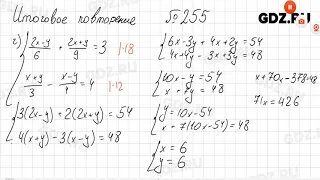 Итоговое повторение № 255
GDZ.RU
г) { (2x-y)/6 + (2x+y)/9 = 3 |·18
(x+y)/3 - (x-y)/4 = 4 |·12
{ 3(2x-y) + 2(2x+y) = 54
4(x+y) - 3(x-y) = 48
{ 6x - 3y + 4x + 2y = 54
4x + 4y - 3x + 3y = 48
{ 10x - y = 54
x + 7y = 48
{ y = 10x - 54
x + 7(10x - 54) = 48
{ x = 6
y = 6
x + 70x - 378 = 48
71x = 426
GDZ.RU